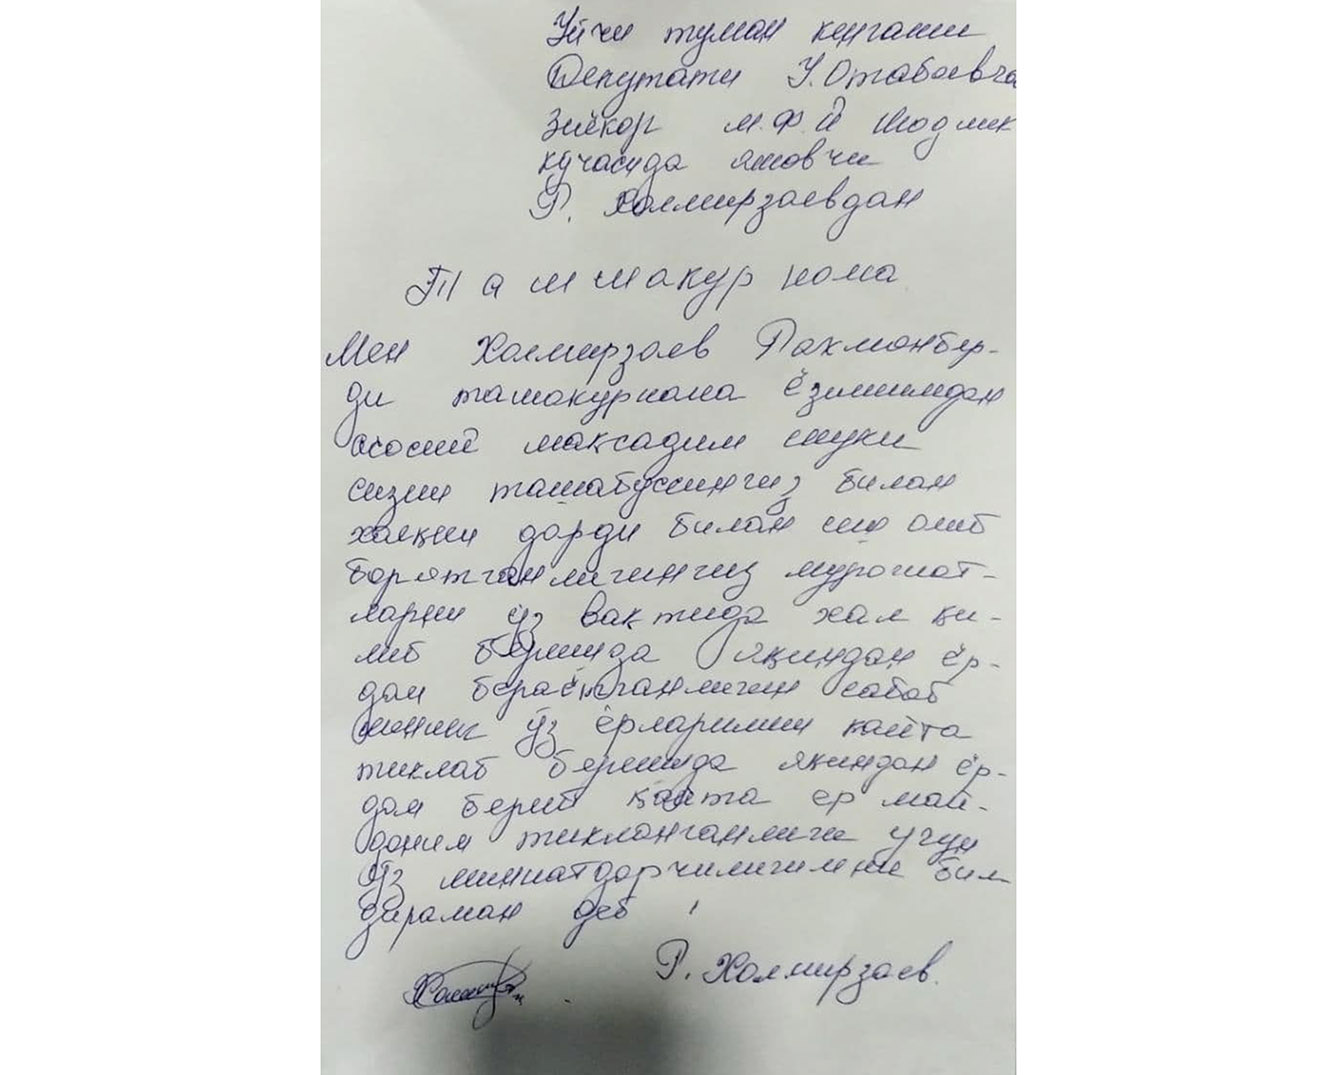 Уйчи туман кенгаши
Депутати У.Отабаевга
Зийкор М.Ф.Й Шодлик
кучасида яшовчи
Р. Холмирзаевдан
Ташшакур нома
Мен Холмирзаев Рахмонбер-
ди ташакурнома ёзишимдан
асосий максадим шуки
сизни ташабуссингиз билан
халқни дарди билан иш олиб
борятганлигингиз мурожат-
ларни ўз вактида хал қи-
либ беришда яқиндан ёр-
дам бераётганлигин сабаб
менинг ўз ёрларимни кайта
тиклаб беришда яқиндан ёр-
дам бериб қайта ер май-
доним тикланганлиги учун
ўз миннатдорчилигимни бил
дираман деб !
Р. Холмирзаев.